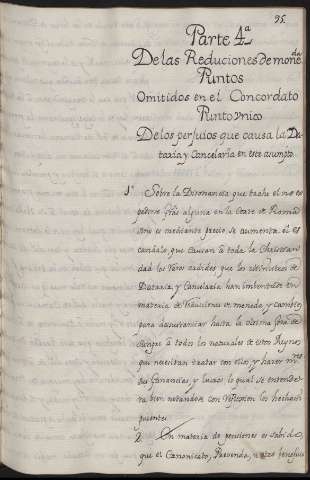 95.
Parte 4.ª
De las Reduciones de moneda
Puntos
Omitidos en el Concordato
Punto vnico
De los perjuios que causa la Da-
taria y Cancelaria en este asumpto
1.º Sobre la Disonancia que trahe el no es-
pedirse alguna en la Corte de Roma
sino es mediante precio se aumenta el es
candalo, que causan à toda la Christian
dad los varios ardides que los Ministros de
Dataria, y Canzilaria han introducido en
materia de Reduciones de moneda, y cambios,
para desustanciar hasta la vltima gota de
Sangre à todos los naturales de estos Reynos
que necesitan tratar con ellos, y hazer
sus Ganancias, y lucros lo qual se entende-
ra bien notandose con reflexion los hechos si-
guientes
2. En materia de pensiones es sabido,
que el Canonicato, Prevenda, u otro beneficio